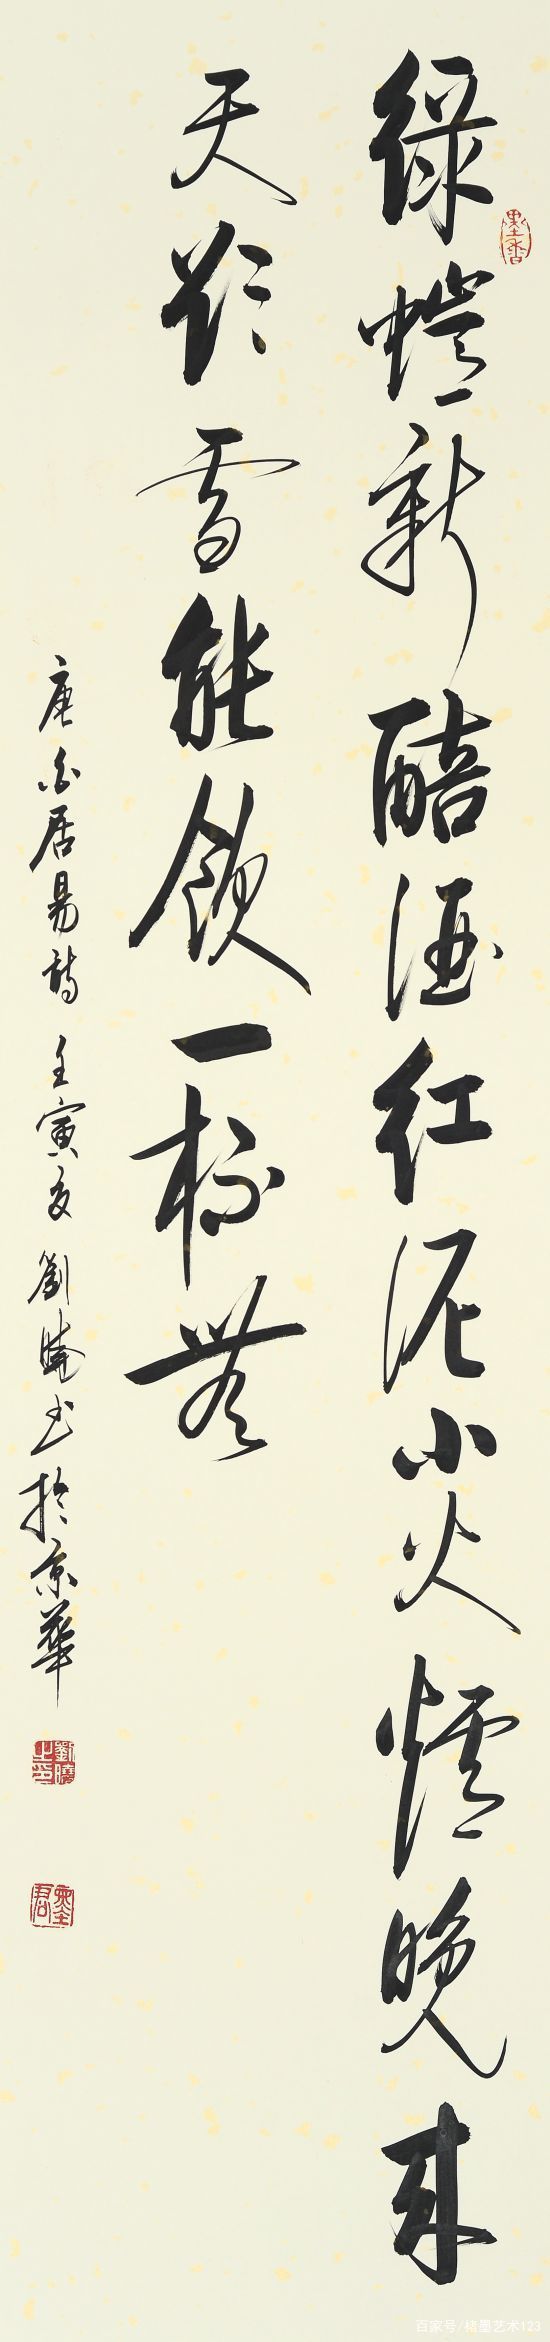 綠螘新醅酒紅泥小火爐晚來
天欲雪能飲一杯無
唐白居易詩壬寅夏劉曉書於京華
墨香
劉曉之印
墨君
百家号/楮墨艺术123